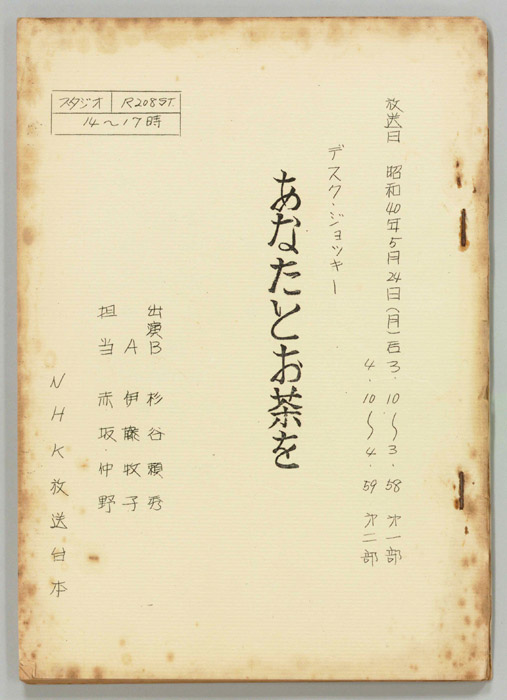 放送日 昭和40年5月24日(月)后3・10〜3・58 才一部
4・10〜4・59 才二部
デスク・ジョッキー
あなたとお茶を
スタジオ R208ST.
14〜17時
出演B 杉谷頼秀
A 伊藤牧子
担当 赤坂・仲野
NHK放送台本